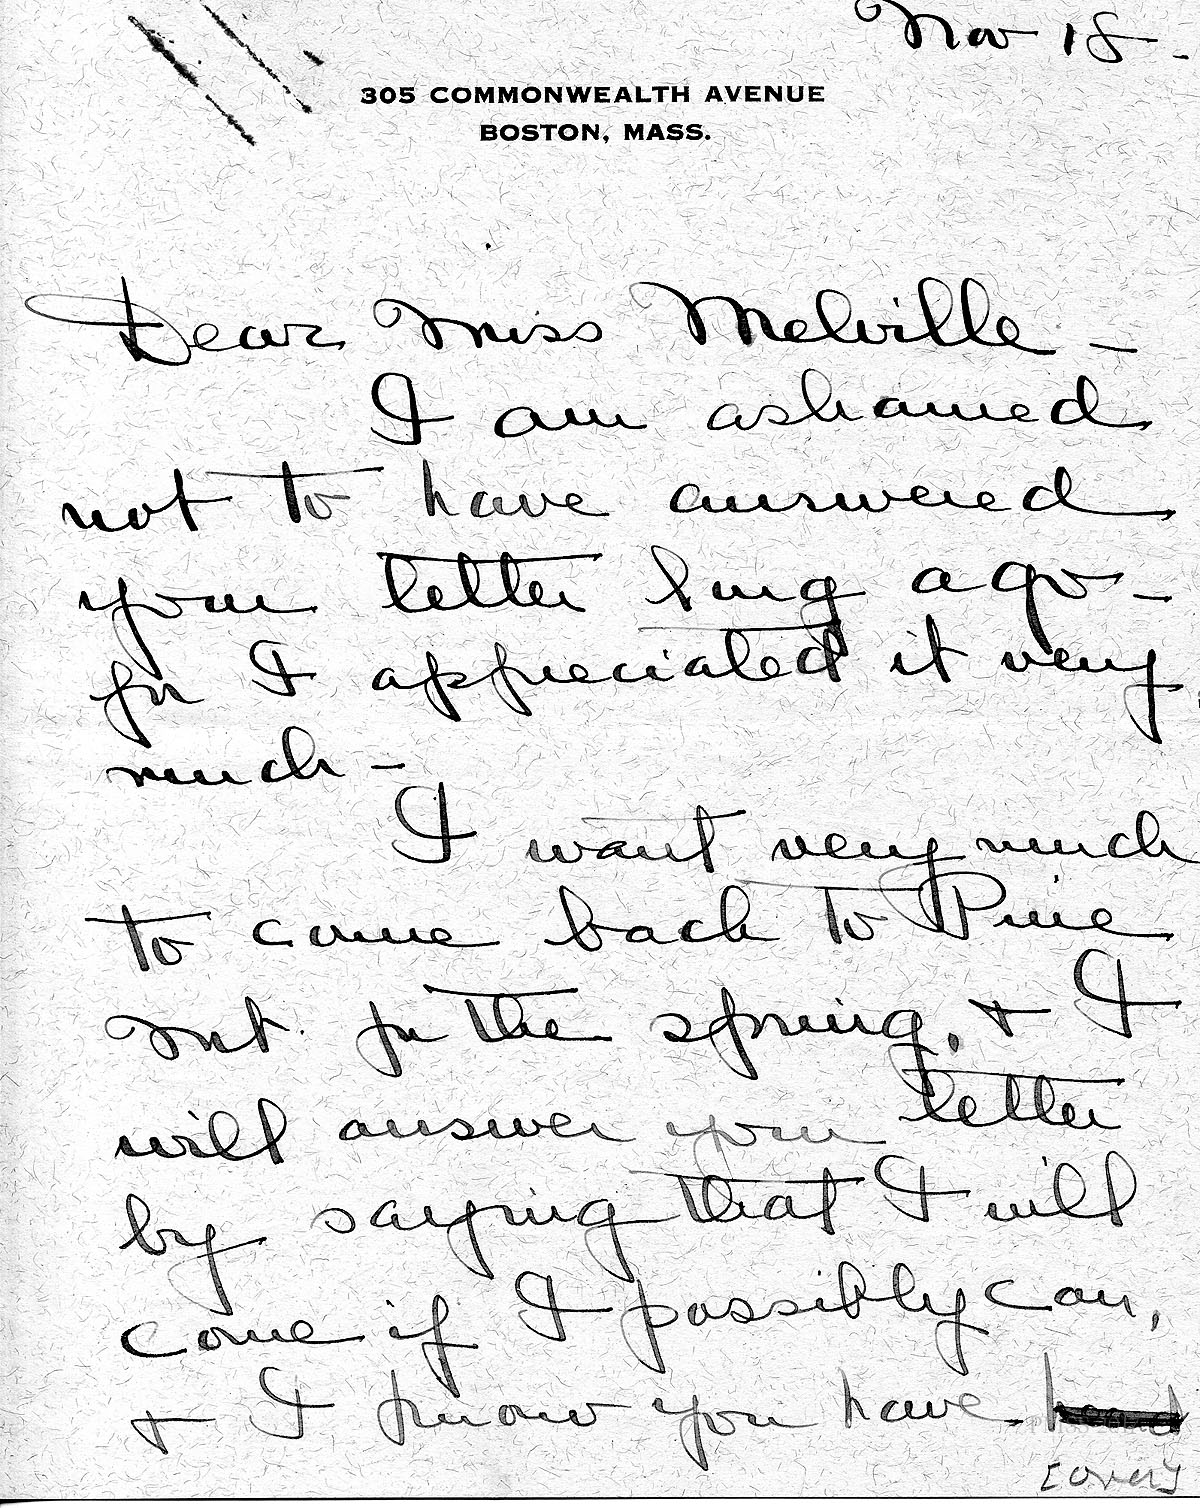 Nov 18-
305 COMMONWEALTH AVENUE
BOSTON, MASS.
Dear Miss Melville -
I am ashamed
not to have answered
your letter long ago -
for I appreciated it very
much -
I want very much
to come back to Pine
Mt. for the spring, + I
will answer your letter
by saying that I will
come if I possibly can,
+ I know you have
[over]